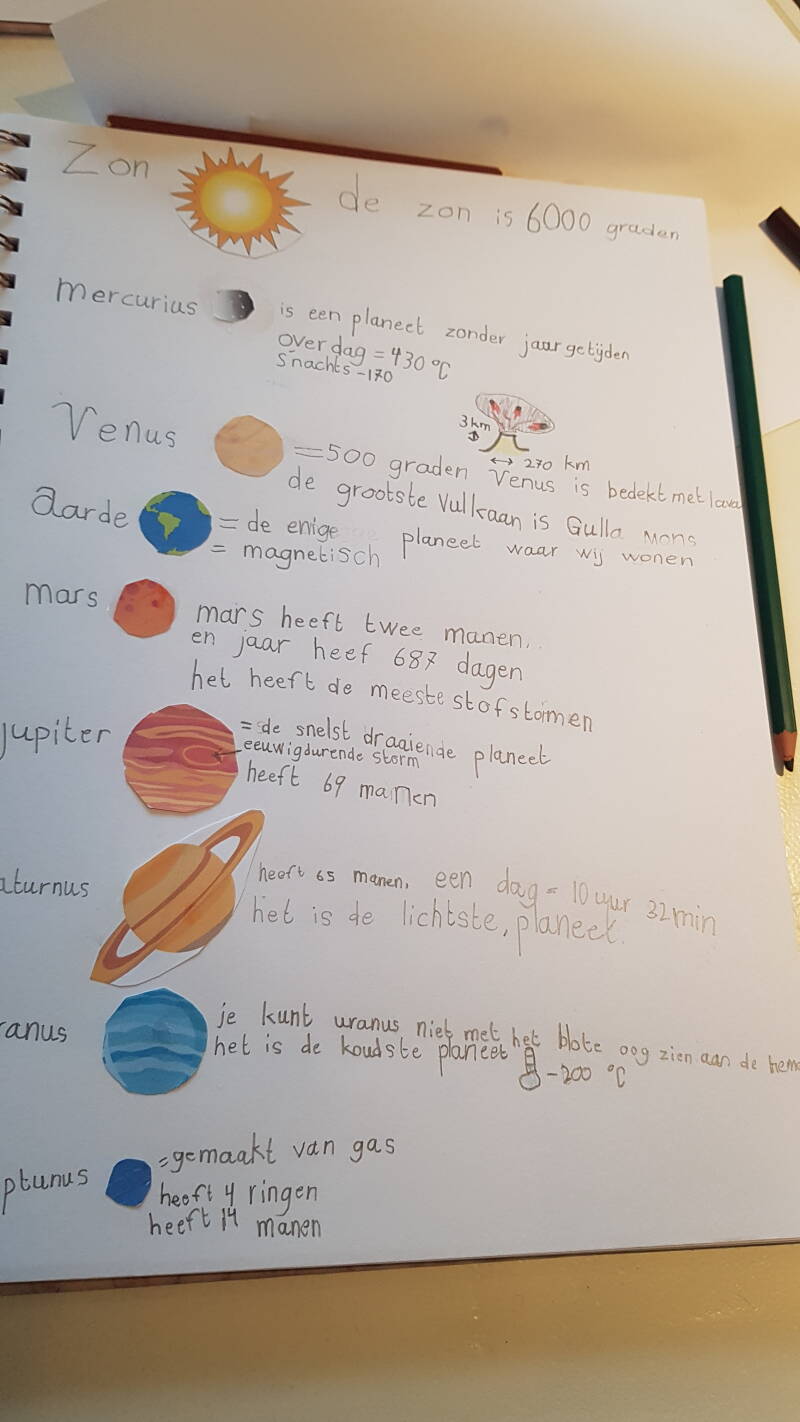 Zon de zon is 6000 graden
mercurius is een planeet zonder jaargetijden
overdag = 430 °C
S'nachts -170
3 km
270 km
Venus = 500 graden Venus is bedekt met lava
de grootste Vulkaan is Gulla Mons
aarde = de enige planeet waar wij wonen
= magnetisch
mars mars heeft twee manen,
en jaar heef 687 dagen
het heeft de meeste stofstormen
jupiter = de snelst draaiende planeet
eeuwigdurende storm
heeft 69 manen
aturnus heeft 65 manen, een dag = 10 uur 32 min
het is de lichtste, planeet.
ranus je kunt uranus niet met het blote oog zien aan de hem
het is de koudste planeet -200 °C
ptunus = gemaakt van gas
heeft 4 ringen
heeft 14 manen